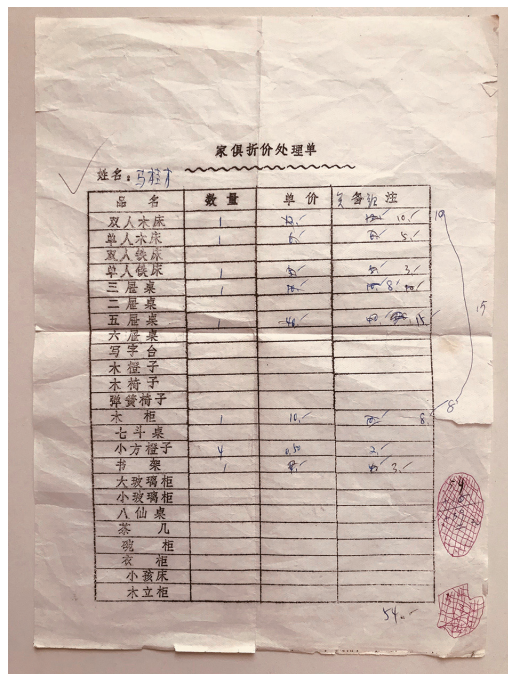 家俱折价处理单
姓名：马
品名 数量 单价 备注
双人木床 1 10.- 19
单人木床 1 5.-
双人铁床
单人铁床 1 3.-
三屉桌 1 8
二屉桌
五屉桌 1 15.- 15
六屉桌
写字台
木橙子
木椅子
弹簧椅子
木柜 1 10.- 8.- 8
七斗桌
小方橙子 4 0.50 2.-
书架 1 3.-
大玻璃柜
小玻璃柜
八仙桌
茶几
碗柜
衣柜
小孩床
木立柜
54.-